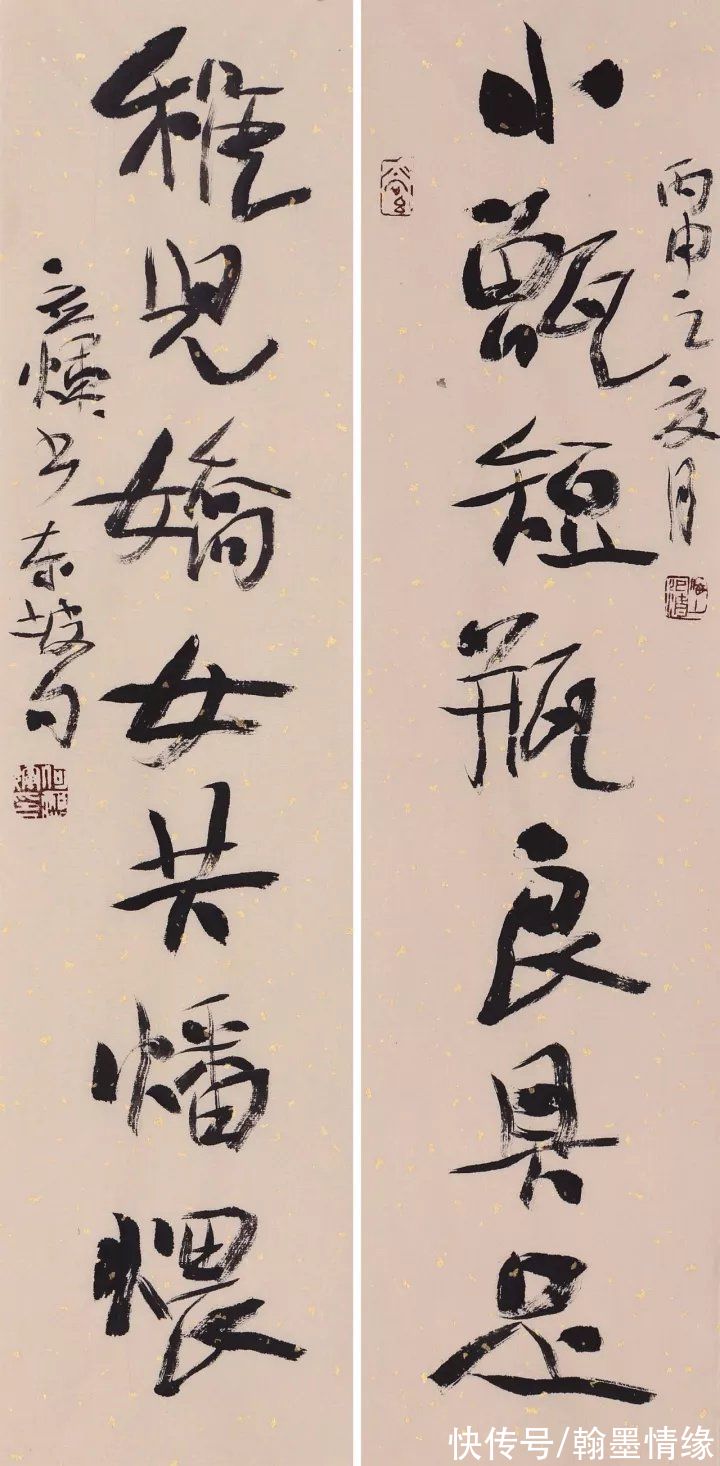 小甑短瓶良具足
丙申之夏月
稚兒嬌女共燔煨
书东坡句
快传号/翰墨情缘